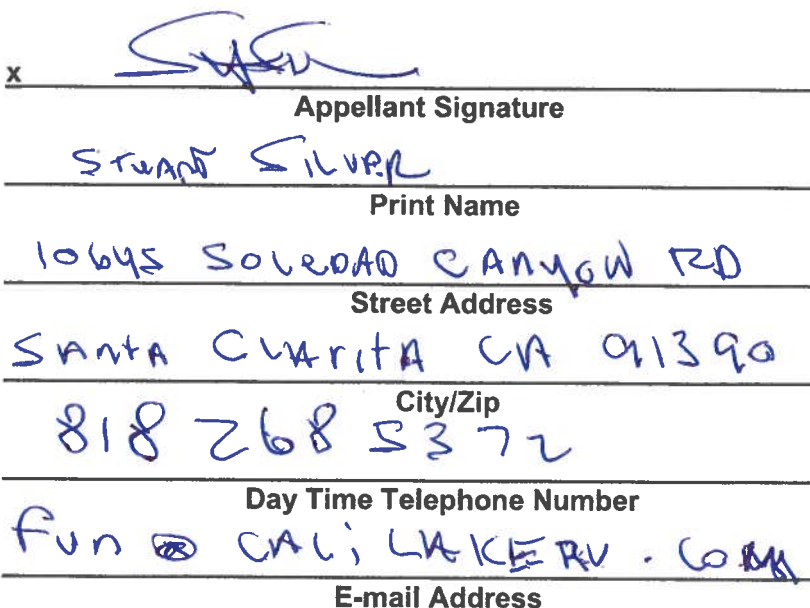 x
Appellant Signature
STUART SILVER
Print Name
10645 SOLEDAD CANYON RD
Street Address
SANTA CLARITA CA 91390
City/Zip
818 268 5372
Day Time Telephone Number
fun @ CALiLAKERV.COM
E-mail Address